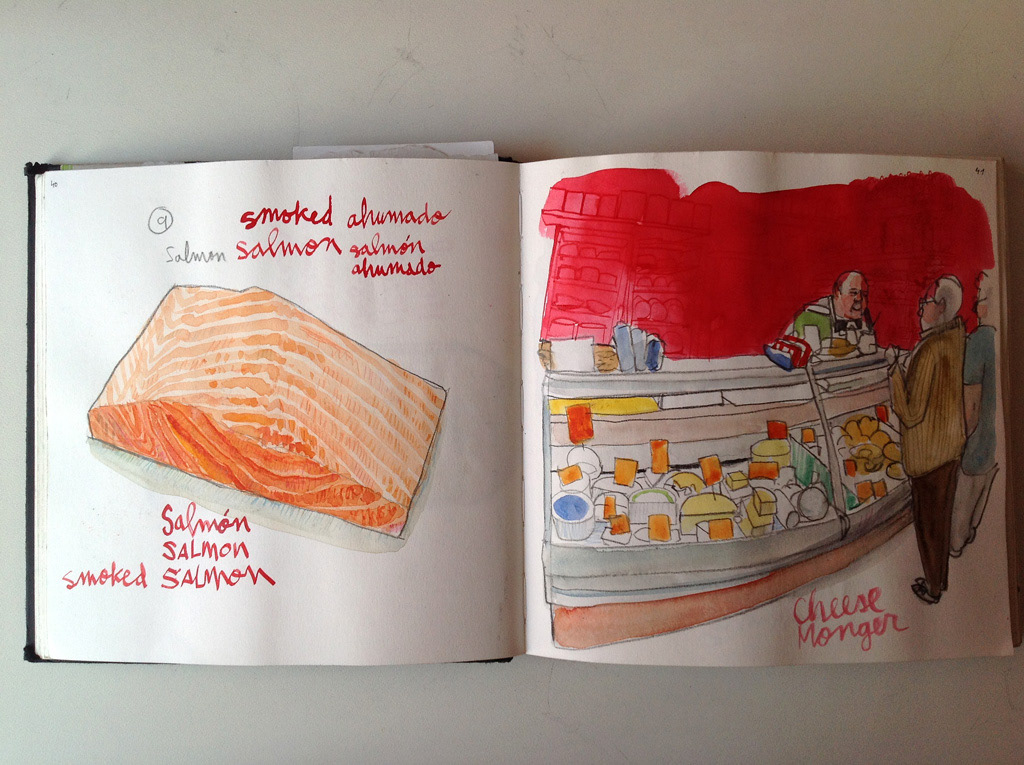 40
9
smoked ahumado
Salmon salmon salmón
ahumado
Salmón
SALMON
smoked SALMON
41
Cheese
Monger